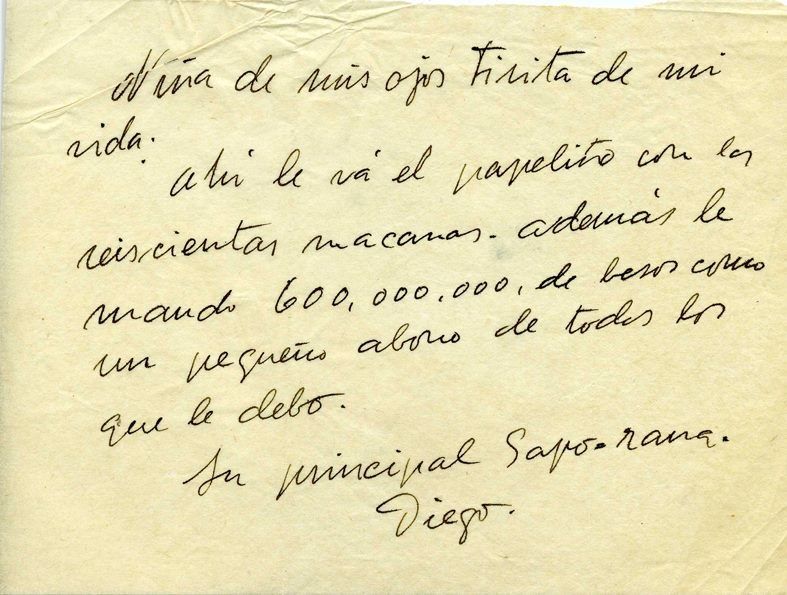 Niña de mis ojos Tisita de mi
vida.
Ahi le vá el papelito con las
seiscientas macanas. además le
mando 600,000,000, de besos como
un pequeño abono de todos los
que le debo.
Su principal Sapo-rana.
Diego.